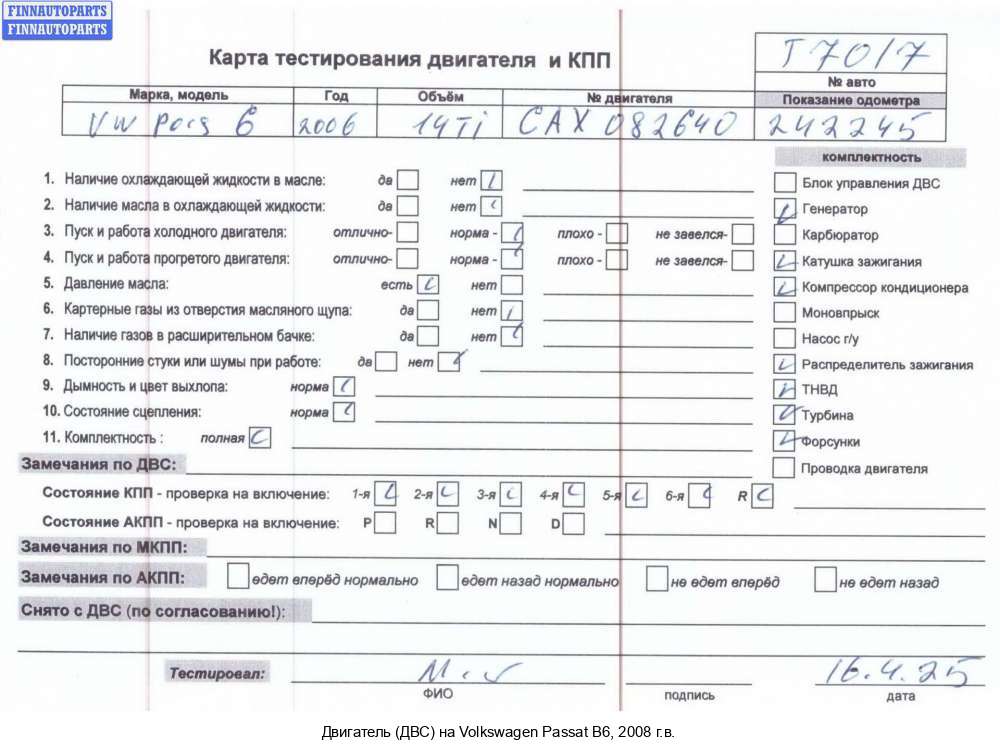 FINNAUTOPARTS
FINNAUTOPARTS
Карта тестирования двигателя и КПП
T7017
№ авто
Марка, модель Год Объём № двигателя Показание одометра
VW 6 2006 14Ti CAX 082640 242245
комплектность
1. Наличие охлаждающей жидкости в масле: да нет
Блок управления ДВС
2. Наличие масла в охлаждающей жидкости: да нет
Генератор
3. Пуск и работа холодного двигателя: отлично- норма - плохо - не завелся-
Карбюратор
4. Пуск и работа прогретого двигателя: отлично- норма - плохо - не завелся-
Катушка зажигания
5. Давление масла: есть нет
Компрессор кондиционера
6. Картерные газы из отверстия масляного щупа: да нет
Моновпрыск
7. Наличие газов в расширительном бачке: да нет
Насос г/у
8. Посторонние стуки или шумы при работе: да нет
Распределитель зажигания
9. Дымность и цвет выхлопа: норма
ТНВД
10. Состояние сцепления: норма
Турбина
11. Комплектность : полная
Форсунки
Замечания по ДВС:
Проводка двигателя
Состояние КПП - проверка на включение: 1-я 2-я 3-я 4-я 5-я 6-я R
Состояние АКПП - проверка на включение: P R N D
Замечания по МКПП:
Замечания по АКПП: едет вперёд нормально едет назад нормально не едет вперёд не едет назад
Снято с ДВС (по согласованию!):
Тестировал: 16.4.25
ФИО подпись дата
Двигатель (ДВС) на Volkswagen Passat B6, 2008 г.в.